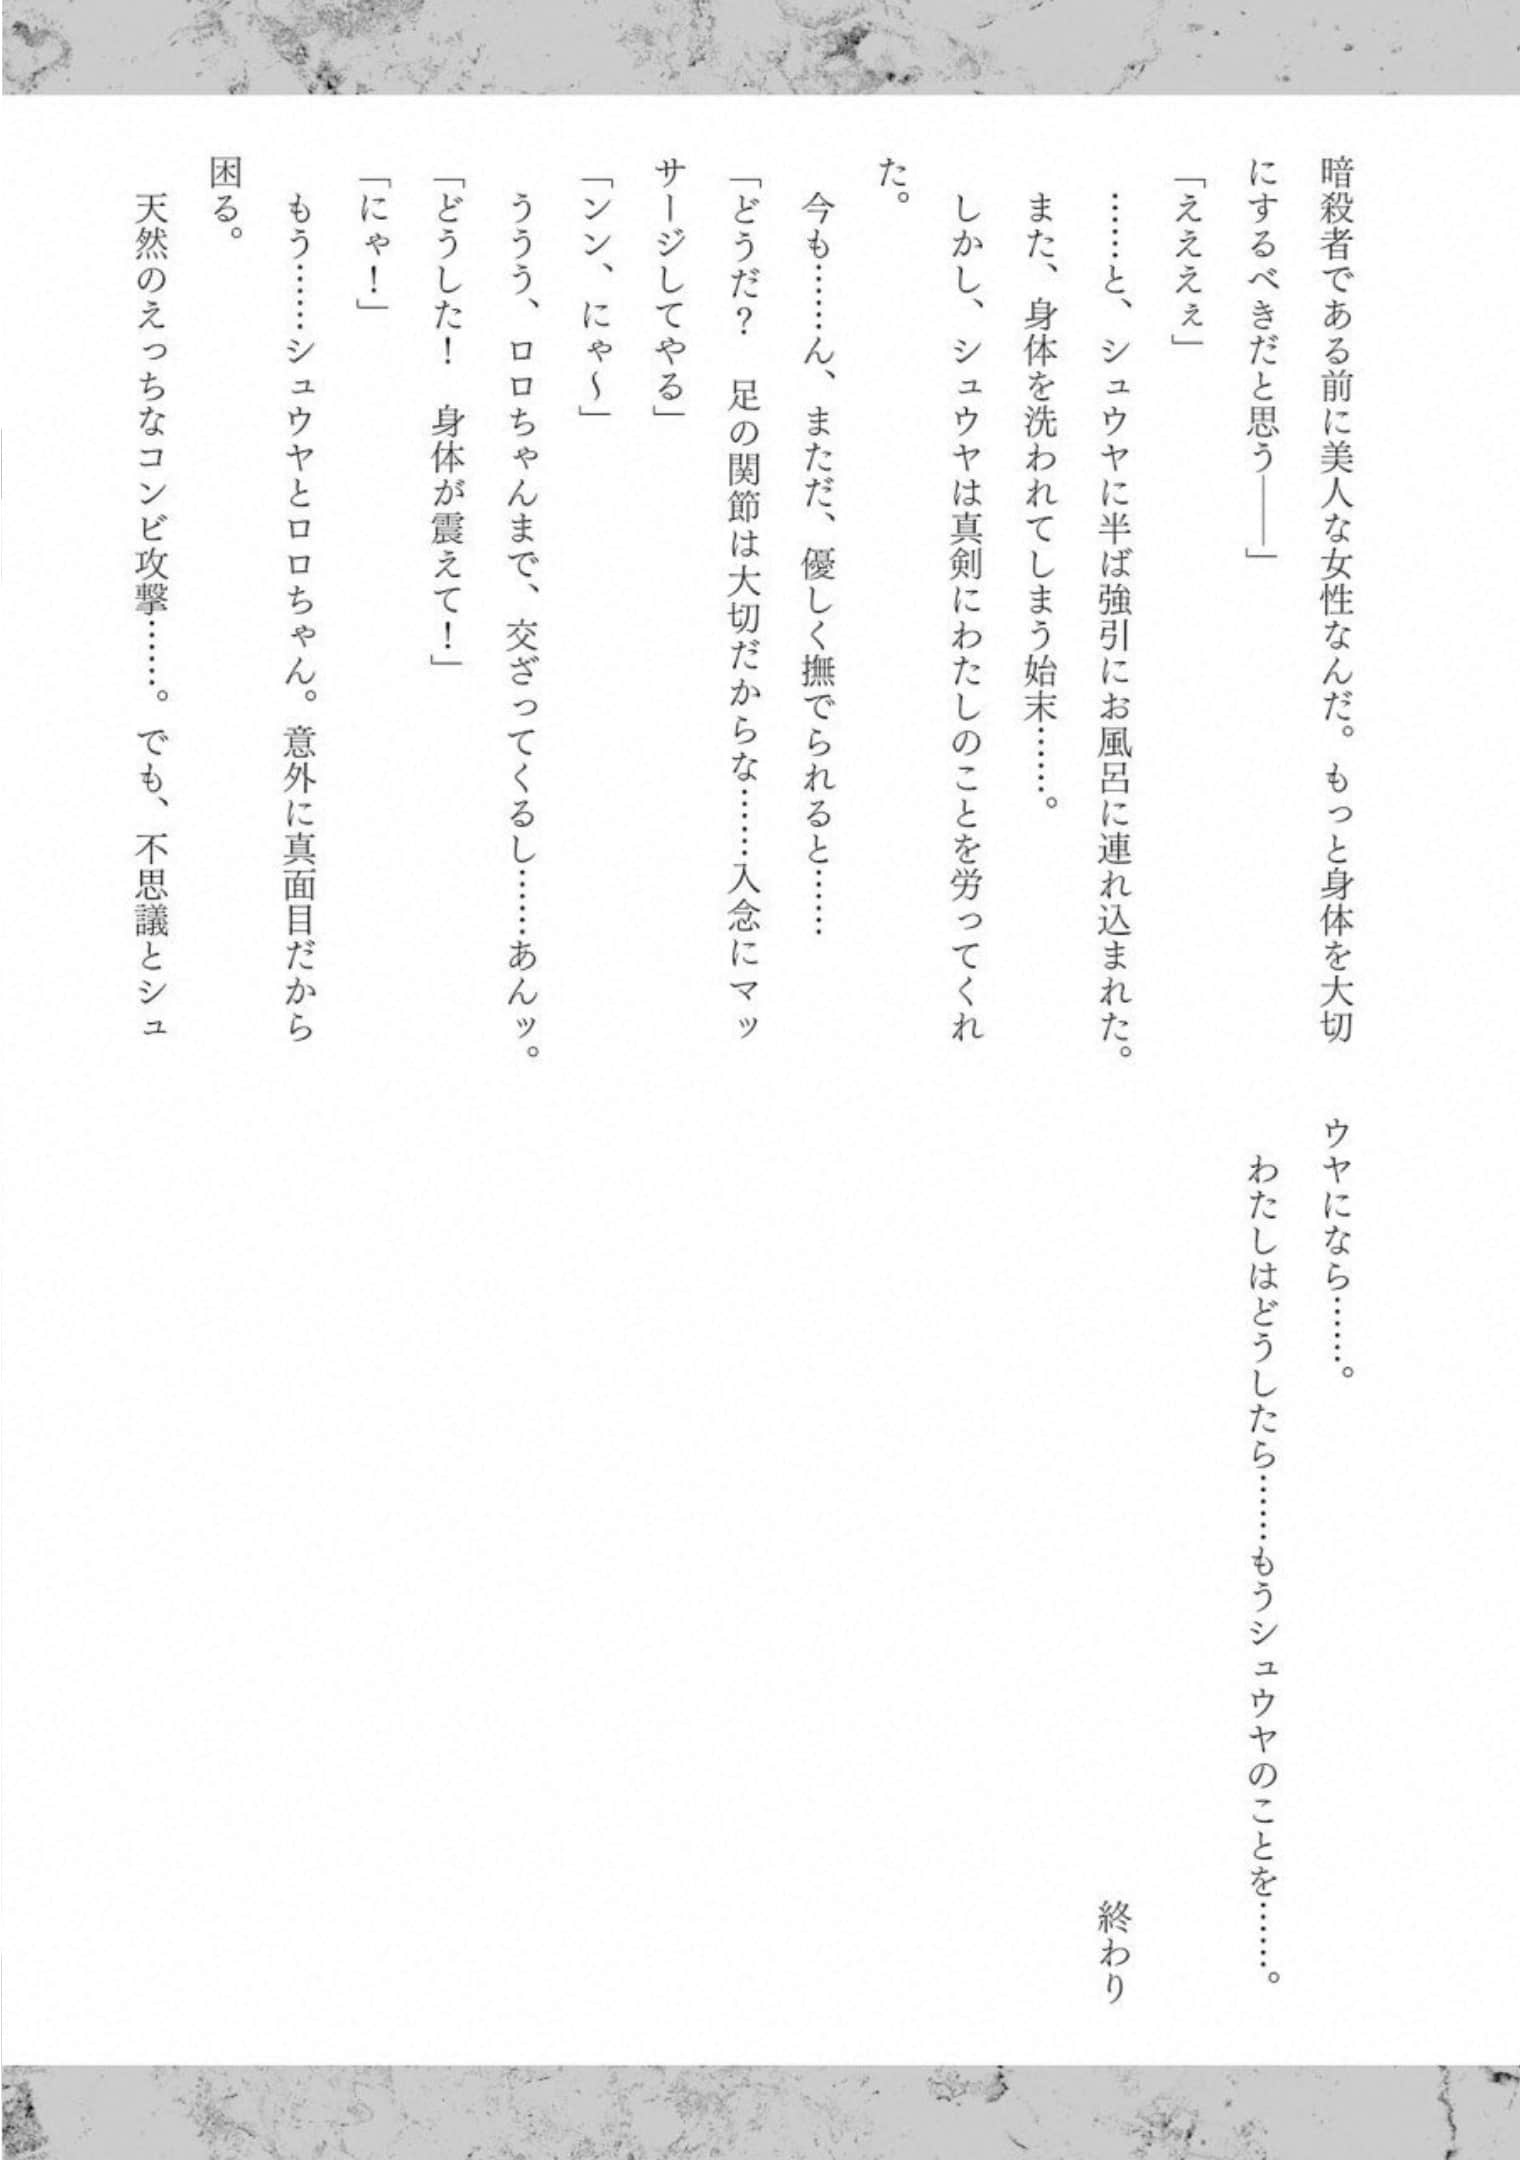 暗殺者である前に美人な女性なんだ。もっと身体を大切
にするべきだと思う――」
「えええぇ」
　……と、シュウヤに半ば強引にお風呂に連れ込まれた。
　また、身体を洗われてしまう始末……。
　しかし、シュウヤは真剣にわたしのことを労ってくれ
た。
　今も……ん、まただ、優しく撫でられると……
「どうだ？　足の関節は大切だからな……入念にマッ
サージしてやる」
「ンン、にゃ～」
　ううう、ロロちゃんまで、交ざってくるし……あんッ。
「どうした！　身体が震えて！」
「にゃ！」
　もう……シュウヤとロロちゃん。意外に真面目だから
困る。
　天然のえっちなコンビ攻撃……。でも、不思議とシュ
ウヤになら……。
　わたしはどうしたら……もうシュウヤのことを……。
終わり